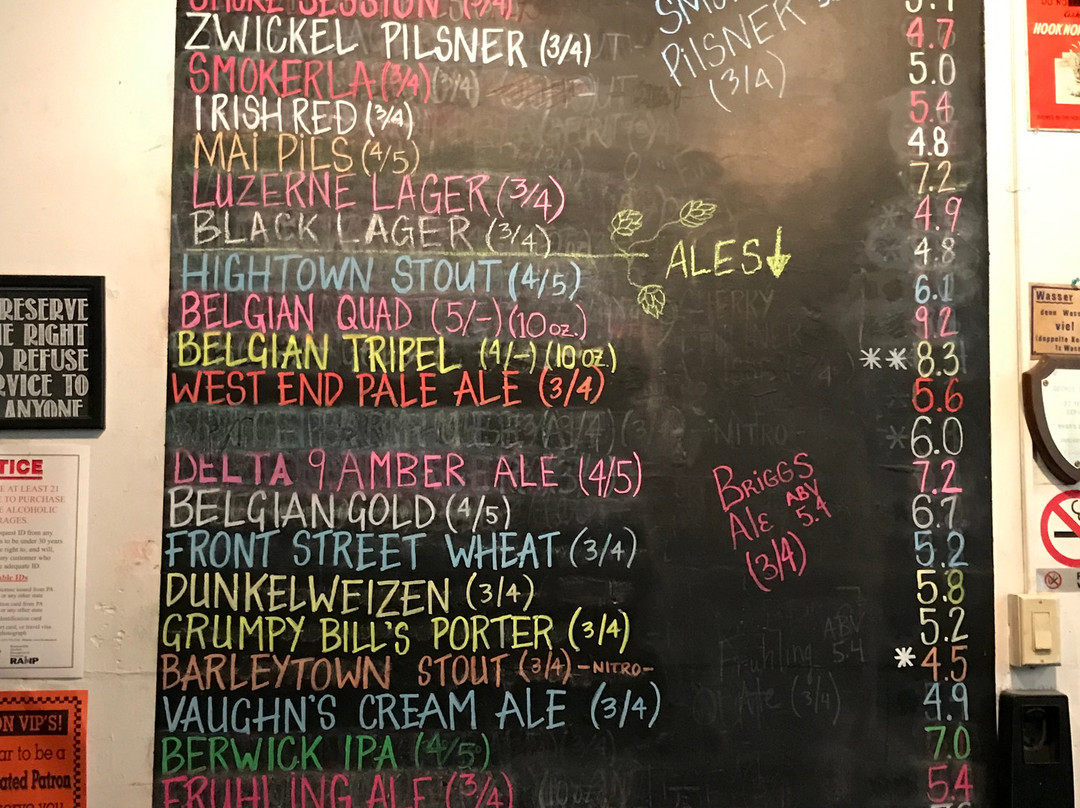 SMOKE SESSION (3/4)
ZWICKEL PILSNER (3/4)
PILSNER
(3/4)
4.7
SMOKERLA (3/4)
5.0
IRISH RED (3/4)
5.4
MAI PILS (4/5)
4.8
7.2
LUZERNE LAGER (3/4)
4.9
BLACK LAGER (3/4)
4.8
ALES
HIGHTOWN STOUT (4/5)
6.1
BELGIAN QUAD (5/-) (10oz.)
9.2
BELGIAN TRIPEL (4/-) (10oz.)
**8.3
WEST END PALE ALE (3/4)
5.6
NITRO
*6.0
DELTA 9 AMBER ALE (4/5)
7.2
BELGIAN GOLD (4/5)
6.7
FRONT STREET WHEAT (3/4)
5.2
DUNKELWEIZEN (3/4)
5.8
GRUMPY BILL'S PORTER (3/4)
5.2
BARLEYTOWN STOUT (3/4) -NITRO-
*4.5
VAUGHN'S CREAM ALE (3/4)
4.9
BERWICK IPA (4/5)
7.0
FRUHLING ALE (3/4)
5.4
BRIGGS
ALE ABV
5.4
(3/4)
Fruhling ABV
5.4
Ale (3/4)
RESERVE
THE RIGHT
REFUSE
SERVICE TO
ANYONE
TICE
E AT LEAST 21
TO PURCHASE
ALCOHOLIC
RAGES.
RAMP
ON VIP'S!
ar to be a
ated Patron
HOOK NOR
Wasser
denn Wass
viel
(doppelte Be